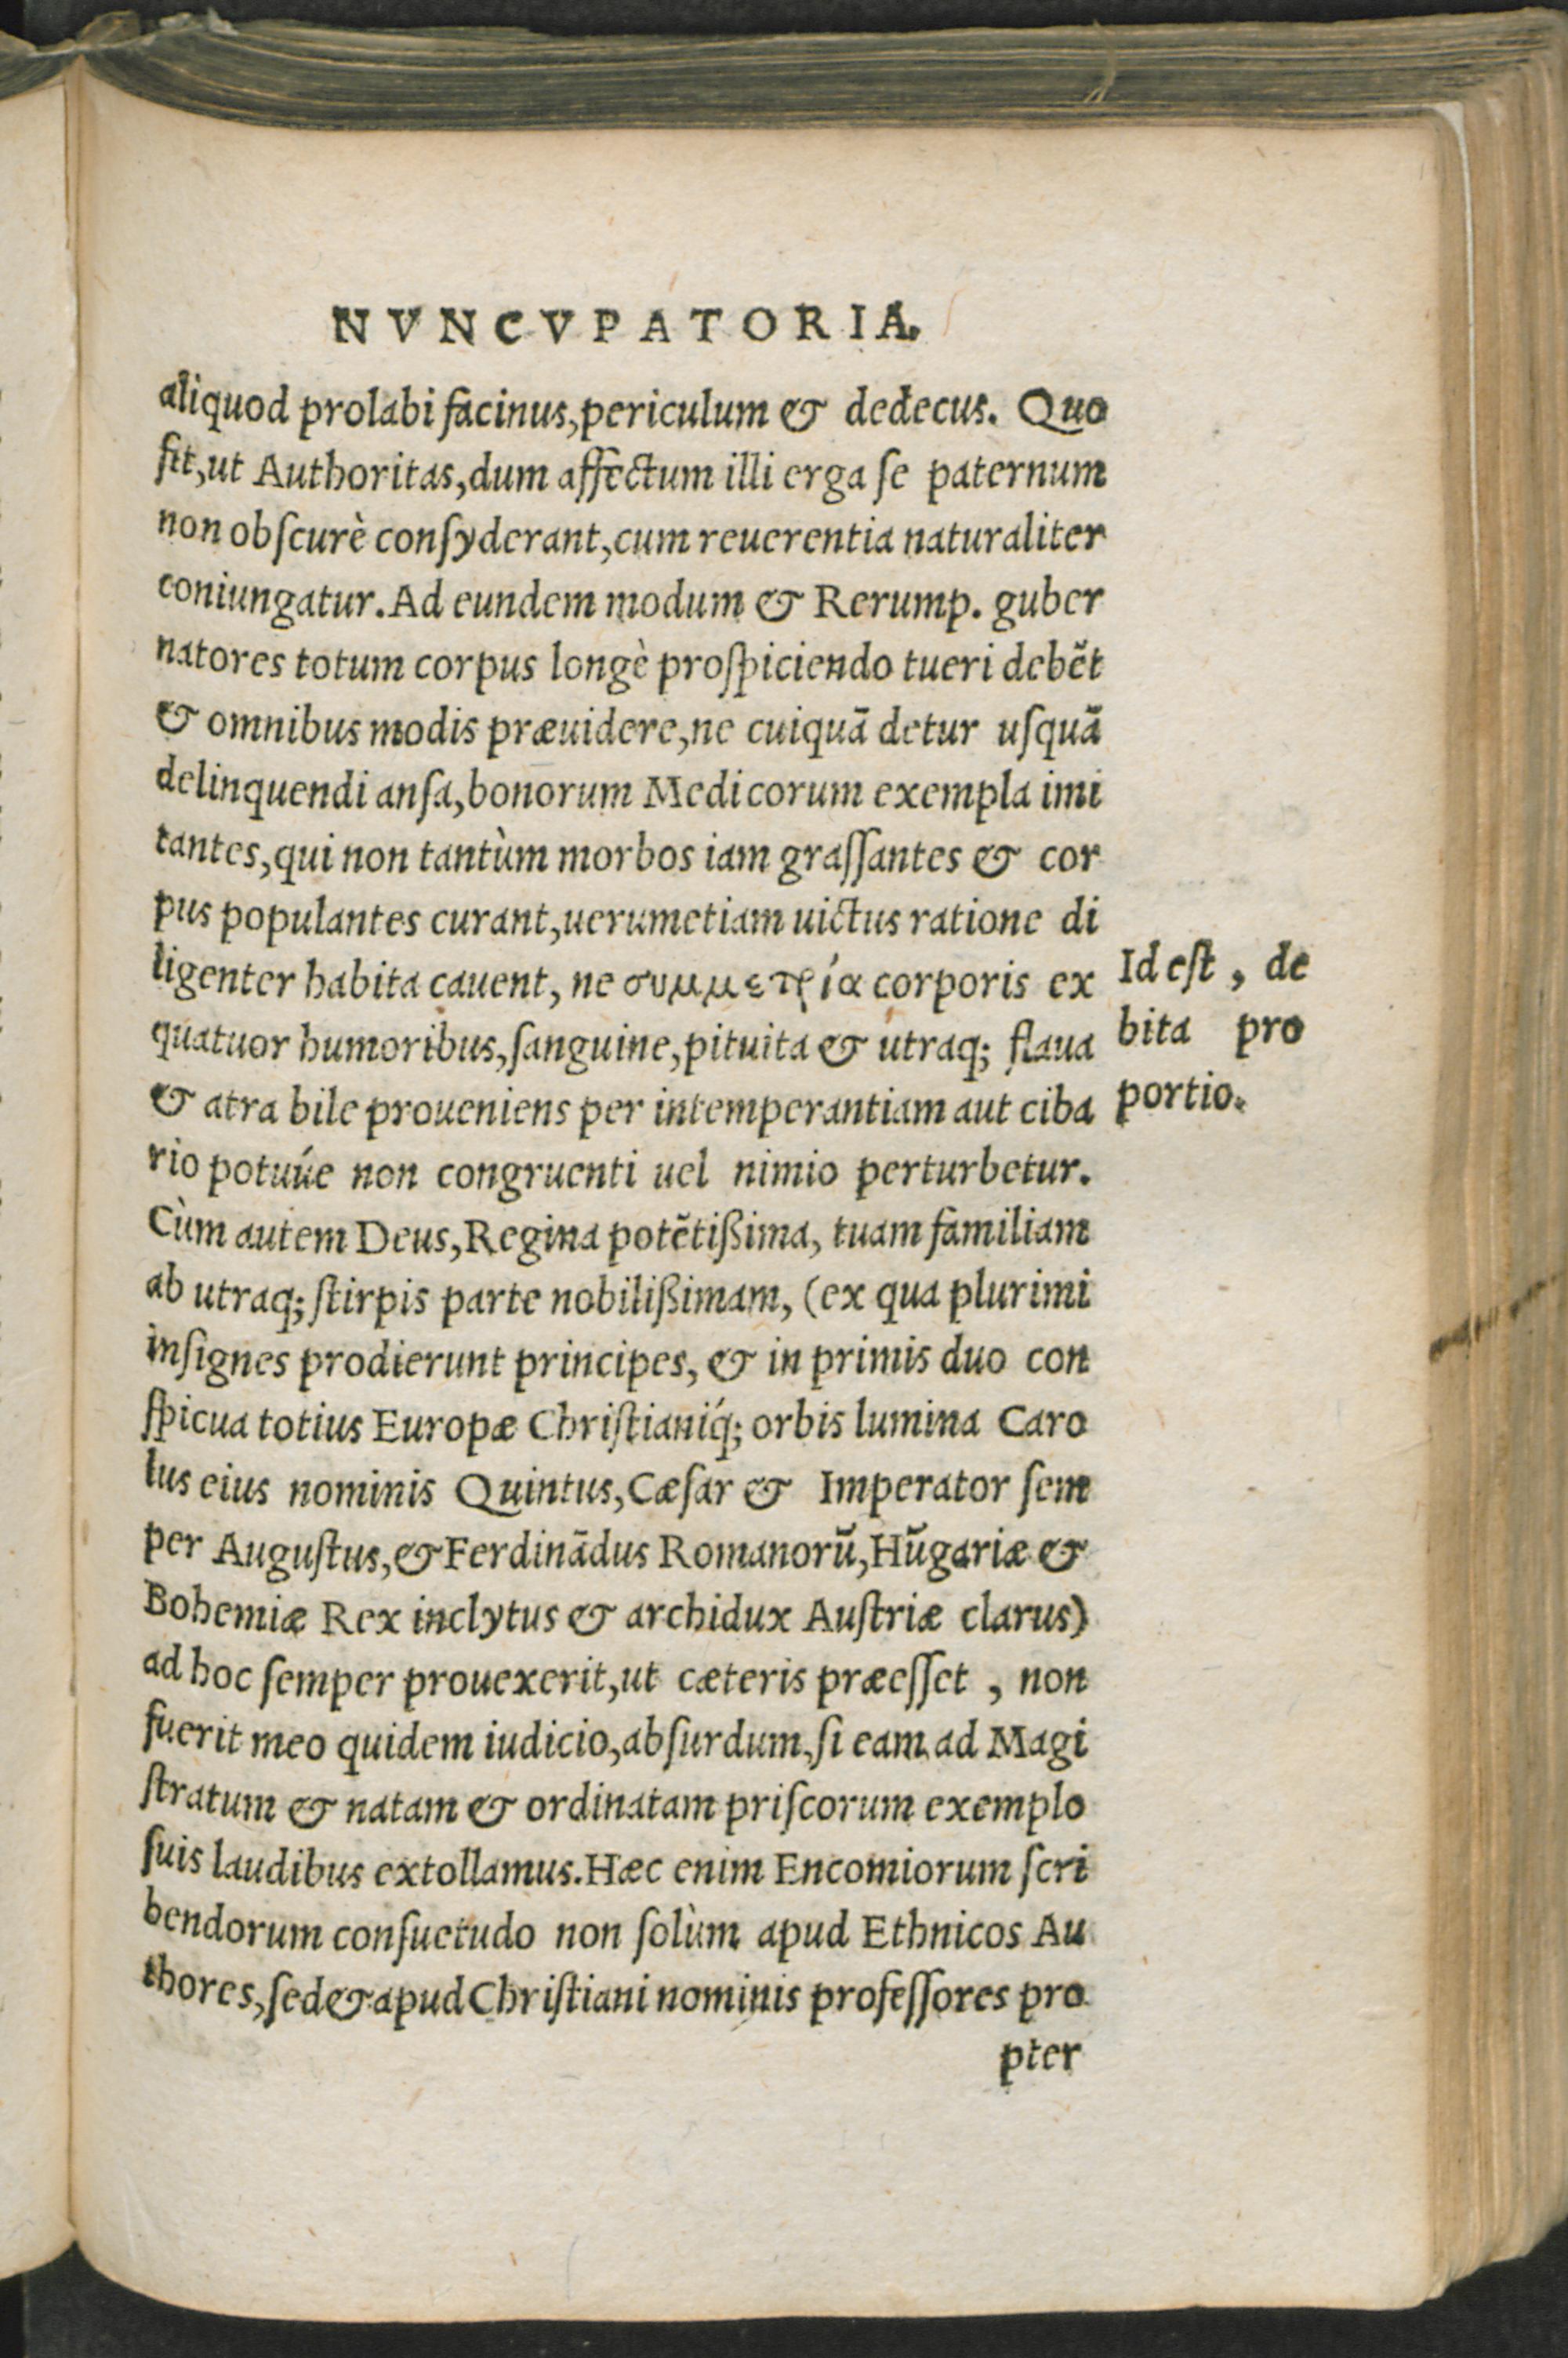 NVNCVPATORIA.
aliquod prolabi facinus, periculum & dedecus. Quo
fit, ut Authoritas, dum affectum illi erga ſe paternum
non obſcurè conſyderant, cum reuerentia naturaliter
coniungatur. Ad eundem modum & Rerump. guber
natores totum corpus longè proſpiciendo tueri debēt
& omnibus modis præuidere, ne cuiquā detur uſquā
delinquendi anſa, bonorum Medicorum exempla imi
tantes, qui non tantùm morbos iam graſſantes & cor
pus populantes curant, uerumetiam uictus ratione di
ligenter habita cauent, ne συμμετρία corporis ex
quatuor humoribus, ſanguine, pituita & utraq; flaua
& atra bile proueniens per intemperantiam aut ciba
rio potuúe non congruenti uel nimio perturbetur.
Cùm autem Deus, Regina potētißima, tuam familiam
ab utraq; ſtirpis parte nobilißimam, (ex qua plurimi
inſignes prodierunt principes, & in primis duo con
ſpicua totius Europæ Chriſtianiq́; orbis lumina Caro
lus eius nominis Quintus, Cæſar & Imperator ſem
per Auguſtus, & Ferdinādus Romanorū, Hūgariæ &
Bohemiæ Rex inclytus & archidux Auſtriæ clarus)
ad hoc ſemper prouexerit, ut cæteris præeſſet, non
fuerit meo quidem iudicio, abſurdum, ſi eam ad Magi
ſtratum & natam & ordinatam priſcorum exemplo
ſuis laudibus extollamus. Hæc enim Encomiorum ſcri
bendorum conſuetudo non ſolùm apud Ethnicos Au
thores, ſed & apud Chriſtiani nominis profeſſores pro
pter
Id eſt, de
bita pro
portio.